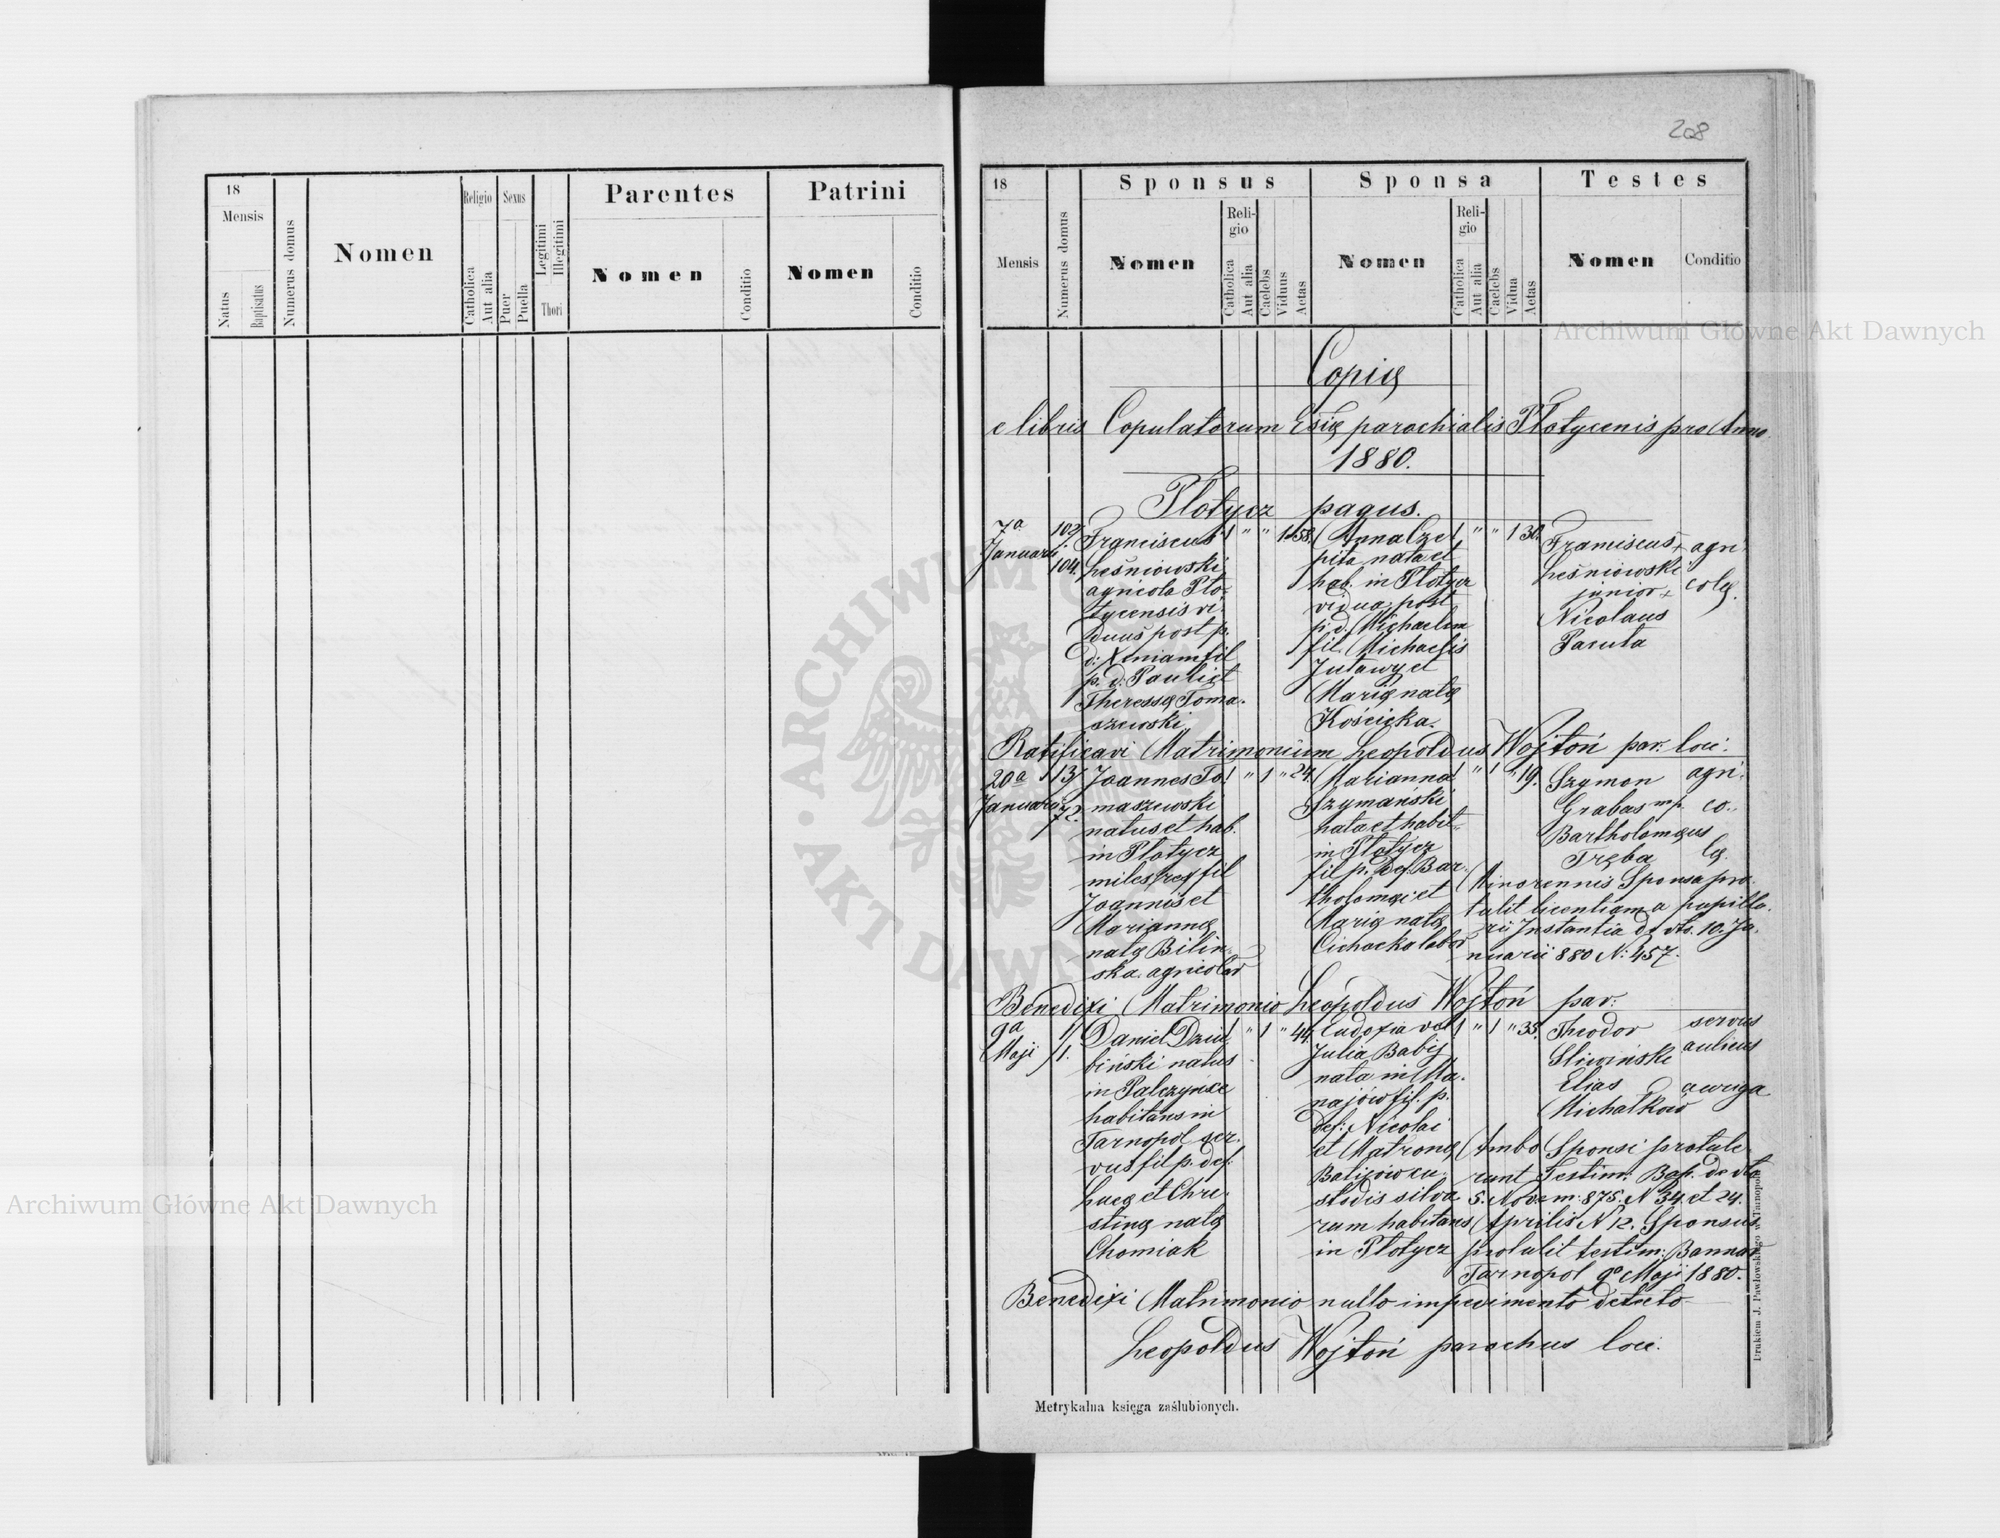 208
18
Mensis
Natus
Baptisatus
Numerus domus
Nomen
Religio
Catholica
Aut alia
Sexus
Puer
Puella
Legitimi
Illegitimi
Thori
Parentes
Nomen
Conditio
Patrini
Nomen
Conditio
18
Mensis
Numerus domus
Sponsus
Nomen
Reli-
gio
Catholica
Aut alia
Caelebs
Viduus
Aetas
Sponsa
Nomen
Reli-
gio
Catholica
Aut alia
Caelebs
Vidua
Aetas
Testes
Nomen
Conditio
Copię
e libris Copulatorum Esię parochialis Płotycensis pro Anno
1880.
Płotycz pagus.
7a
Januarii
102/
104.
Franciscus
Leśniowski
agricola Pło-
tycensis vi-
duus post p.
d: Xeniam fil
p. d. Pauli et
Theressę Toma-
szewski
1 " " 1 58.
Anna Cze
pita nata et
hab. in Płotycz
vidua post
p. d. Michaelem
fil. Michaelis
Jutawy et
Marię natę
Kościcka.
1 " " 1 30.
Franciscus +
Leśniowski
junior +
Nicolaus
Paruta
agri
colę.
Ratificavi Matrimonium Leopoldus Wojtoń par. loci.
20a
Januarii
13/
72.
Joannes To
maszewski
natus et hab.
in Płotycz
miles reg fil
Joannis et
Mariannę
natę Bilin-
ska. agricolar
1 " 1 " 27.
Marianna
Szymański
nata et habit-
in Płotycz
fil p. def. Bar-
tholomei et
Marię natę
Cichacka labor
1 " 1 " 19.
Szymon
Grabas mp.
Bartholomęus
Tręba
agri-
co-
lę.
Minorennis Sponsa pro-
tulit licentiam a pupilla-
rii Instantia de dto. 10. Ja-
nuarii 880 N: 457.
Benedixi Matrimonio Leopoldus Wojtoń par:
9a
Maji
1/
1.
Daniel Dziu
biński natus
in Palczyńce
habitans in
Tarnopol ser-
vus fil p. def.
Lucę et Chre-
stinę natę
Chomiak
1 " 1 " 44.
Eudoxia vel
Julia Babij
nata in Ma-
najów fil. p.
def: Nicolai
et Matronę
Batiów cu-
stodis silva
rum habitans
in Płotycz
1 " 1 " 35.
Theodor
Sliwiński
Elias
Michałków
servus
aulicus
auriga
Ambo Sponsi protule
runt Testim: Bap. de dto
5. Novem: 875. N 34. et 24.
Aprilis N 12. Sponsus
protulit testim: Bannor
Tarnopol 9o Maji 1880.
Benedixi Matrimonio nullo impedimento detecto
Leopoldus Wojtoń parochus loci.
Metrykalna księga zaślubionych.
Drukiem J. Pawłowskiego w Tarnopolu
Archiwum Główne Akt Dawnych
Archiwum Główne Akt Dawnych